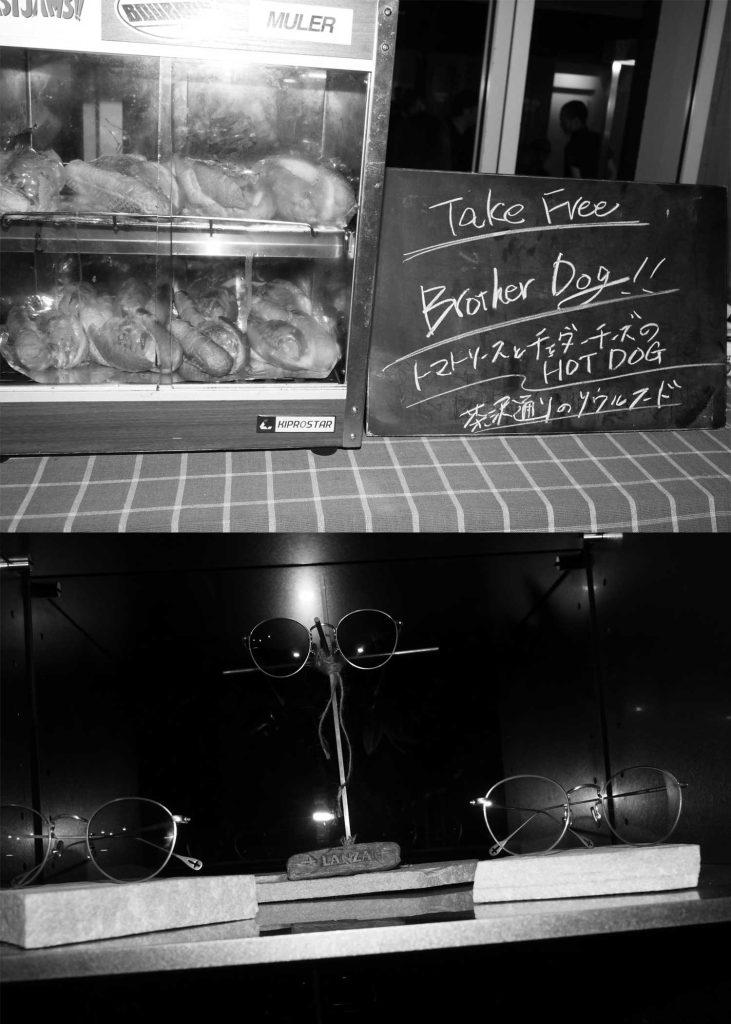 MULER
Take Free
Brother Dog!!
トマトソースとチェダーチーズの
HOT DOG
茶沢通りのソウルフード
KIPROSTAR